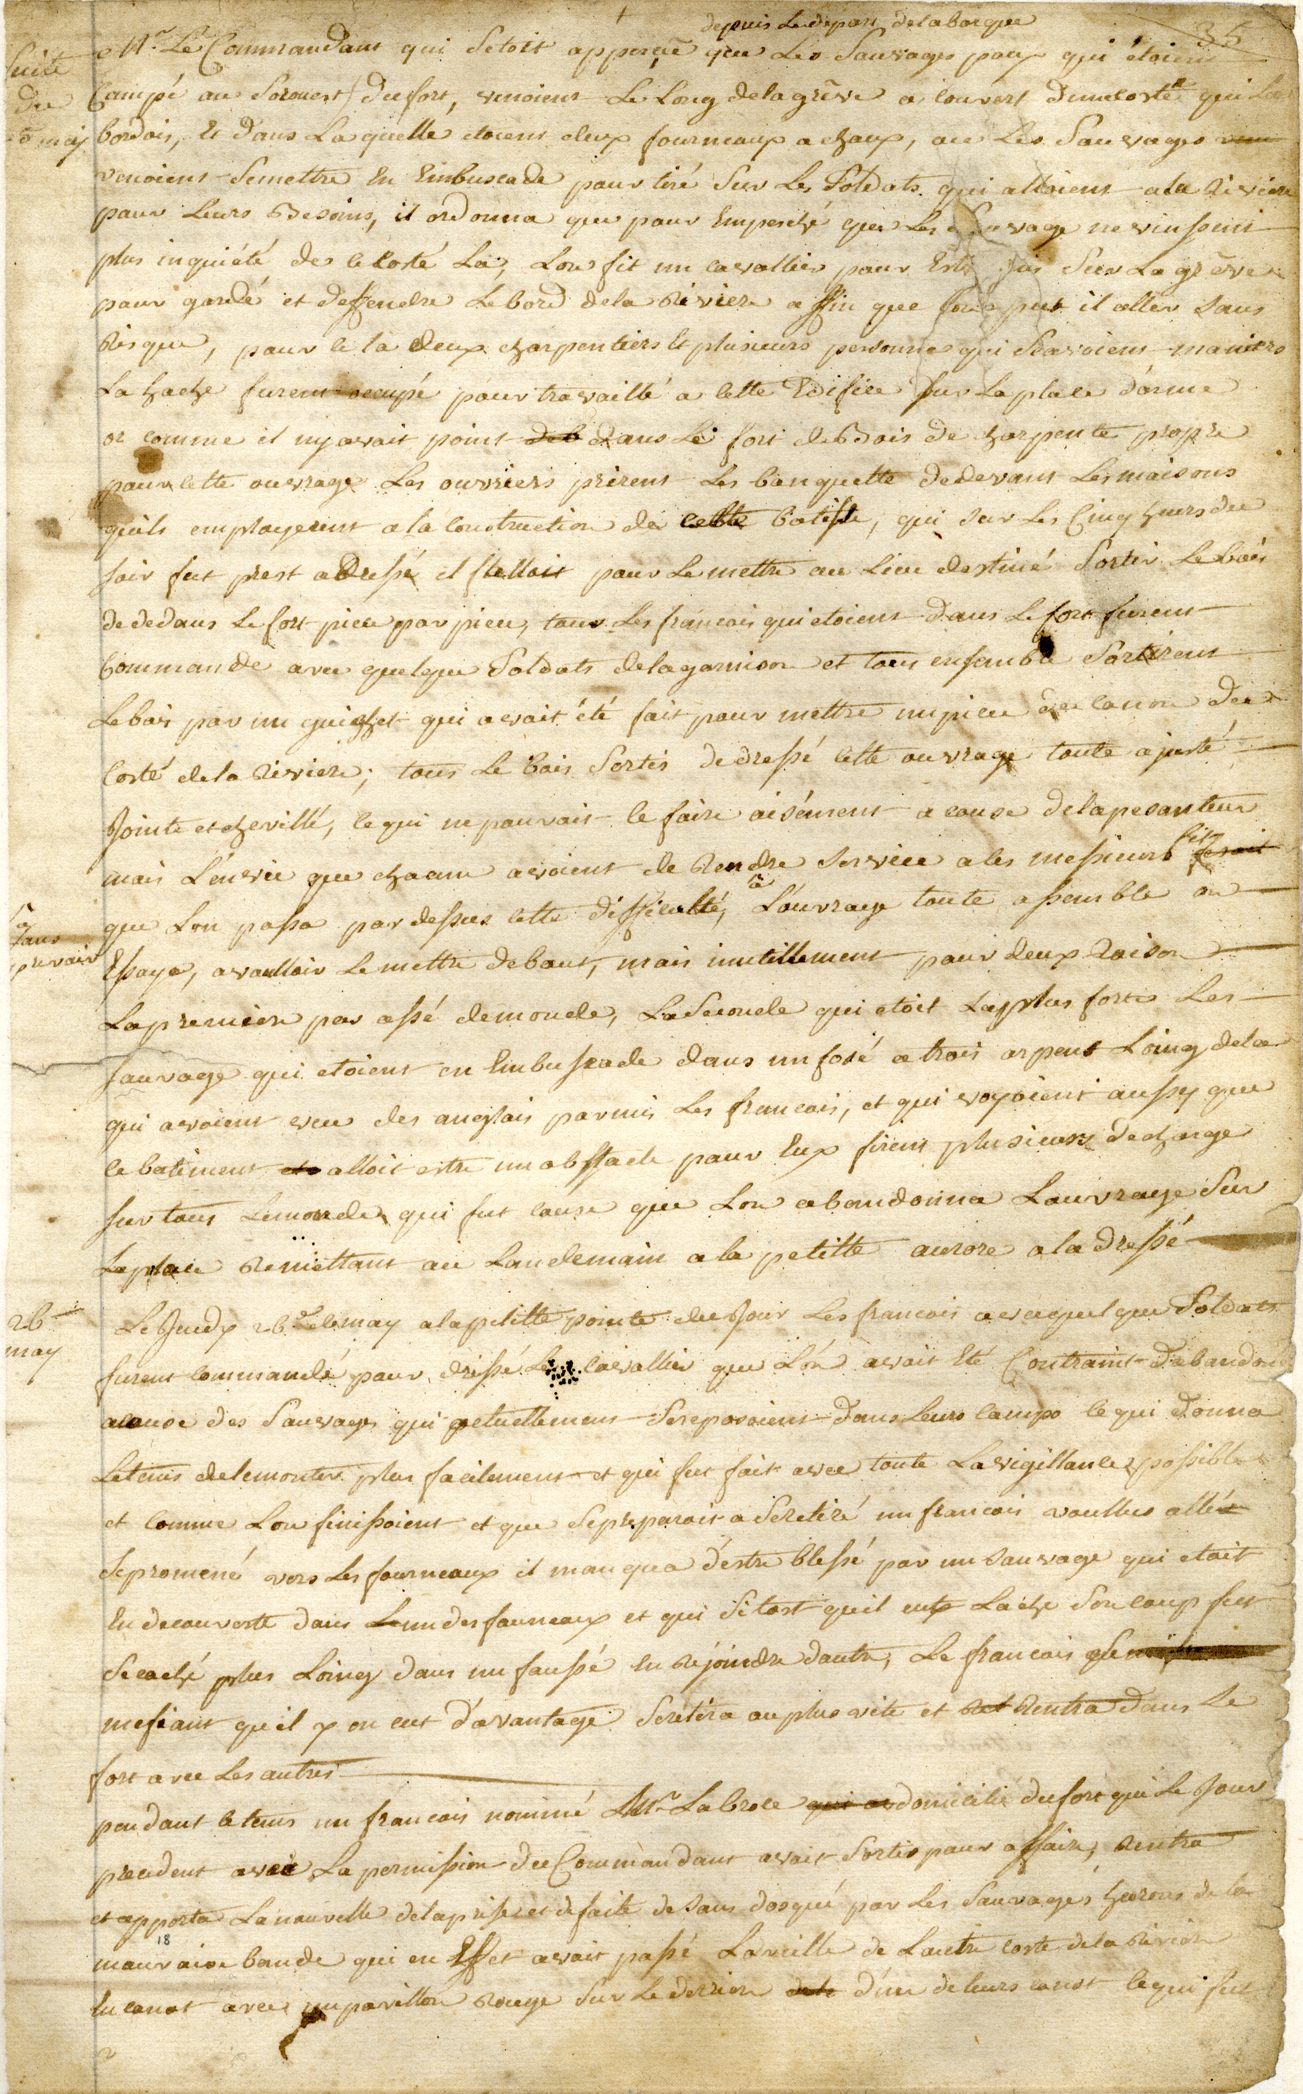 35
depuis Le depart de la barque
Suite
du
may
Mr. Le Commandant qui S'etoit apperçue que Les Sauvages poux qui étoient
Campé au Sorouest du fort, venoient Le Long de la grêve a couvert d'une coste qui La
bordois, Et dans Laquelle etoient deux fourneaux a chaux, ou Les Sauvages
venoient Se mettre En Embuscade pour tiré Sur Les Soldats qui alloient a la Riviere
pour Leurs Besoins, il ordonna que pour Empesché que Les Sauvage ne vinssent
plus inquiété de ce costé La, Lon fit un cavallier pour Estre mis Sur La grêve
pour gardé et deffendre Le bord de la Riviere affin que Lon put il aller Sans
Risque, pour ce la deux charpentiers Et plusieurs personnes qui Scavoient maniers
La hache furent occupé pour travaillé a cette Edifice Sur La place d'arme
or comme il ny avait point deb dans Le fort de Bois de charpente propre
pour cette ouvrage Les ouvriers prirent Les banquette de devant Les maisons
quils employerent a la Construction de cette batisse, qui Sur Les Cinq heures du
soir fut prest a Dressé il falloit pour Le mettre au Lieu destiné Sortir Le bois
de dedans Le fort piece par piece, tous Les francois qui etoient dans Le fort furent
Commande avec quelque Soldats de la garnison et tous ensemble Sortirent
Le bois par un guichet qui avait été fait pour mettre un piece de canon du
Costé de la Riviere; tous Le bois Sortis de dressé cette ouvrage toute ajusté
Jointe et chevillé, ce qui ne pouvait ce faire aisément a cause de la pesanteur
mais L'envie que chacun avoient de Rendre Service a ces messieurs fit feroit
que Lon passa par dessus cette difficulté, L'ouvrage toute assemble on
a
sans
prevoir
Essaya, a voulloir Le mettre debout, mais inutillement pour deux Raison
La premiere par assé de monde, La Seconde qui etoit La plus forte Les
sauvage qui etoient en Embuscade dans un fosé a trois arpent Loing de la
qui avoient veu des anglais parmis Les francois, et qui voyoient aussy que
ce batiment alloit estre un obstacle pour Eux firent plusieurs decharge
sur tous Le monde, qui fut cause que Lon abandonna Louvrage Sur
La place Remettant au Landemain a la petitte aurore a la dressé
26
may
Le Jeudy 26e de may a la petitte pointe du Jour Les francois avec quelque Soldats
furent commandé pour dressé Le Cavallier que Lón avait Eté Contraint D'abandonné
a cause des Sauvages qui actuellement Se reposoient dans Leurs camps ce qui donna
Le tems de le monter plus facilement et qui fut fait avec toute La vigillance possible
et comme Lon finissoient et que Se preparoit a Se retiré un francois voullus allér
Se promené vers Les fourneaux il manqua d'estre blessé par un sauvage qui etoit
En decouverte dans L'un des fourneaux et qui Si tost qu'il eut Laché Son coup fut
Se caché plus Loing dans un faussé En Rejoindre d'autre, Le francois Se
mefiant qu'il y en eut d'avantage Se retira au plus vite et Rentra dans Le
fort avec Les autres
pendant ce tems un francois nommé Mr. Labroce qui domicilié du fort qui Le Jour
precedent avec La permission du Commandant avait Sortis pour affaire, Rentra
et apporta La nouvelle de la prise et defaite de Sans dosqué par Les Sauvages hurons de la
18
mauvaise bande qui en Effet avait passé La veille de L'autre costé de la Riviere
En canot avec un pavillon Rouge Sur Le derriere d'un de leurs canot ce qui fut